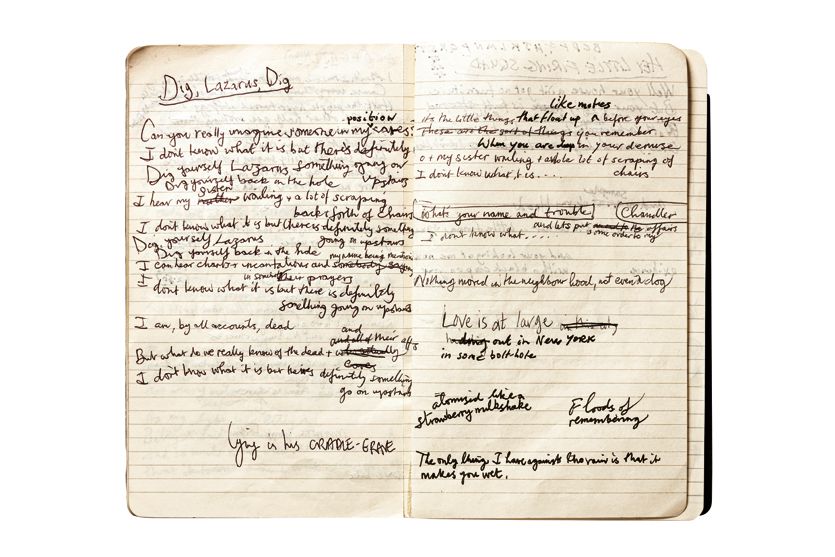 Dig, Lazarus, Dig
position
Can you really imagine someone in my
I dont know what it is but theres definitely
Dig yourself Lazarus something going on
Dig yourself back in the hole upstairs
sister
I hear my mother wailing + a lot of scraping
back + forth of chairs
I dont know what it is but there is definitely something
Dig yourself Lazarus going on upstairs
Dig yourself back in the hole
my name being mentioned
I can hear chants + incantations and somebody saying
in some their prayers
I dont know what it is but there is definitely
something going on upstairs
I am, by all accounts, dead
and
and all of their
But what do we really know of the dead + who actually
cares
I dont know what it is but theres definitely something
go on upstairs
lying in his CRADLE-GRAVE
like motes
its the little things that float up before your eyes
These are the sort of things you remember
When you are deep in your demise
+ my sister wailing + a whole lot of scraping of
I dont know what, it is.... chairs
Whats your name and trouble Chandler
and lets put affairs
some order to my
I dont know what....
Nothing moved in the neighbour hood, not even a dog
Love is at large
out in New YORK
in some bolt-hole
atomised like a
strawberry milkshake
Floods of
remembering
The only thing I have against the rain is that it
makes you wet.